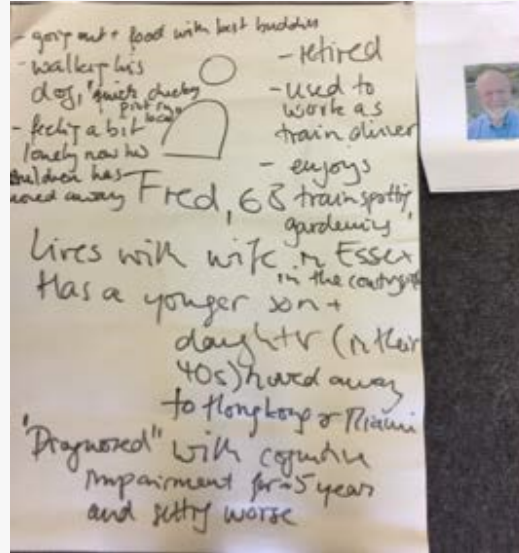 - going out + food with best buddies
- walking his
dog, "quick cheeky
pint in
local"
- feeling a bit
lonely now his
children has
moved away
- retired
- used to
work as
train driver
- enjoys
trainspotting,
gardening
Fred, 68
Lives with wife in Essex
in the countryside
Has a yonger son +
daughter (in their
40s) moved away
to Hong Kong & Miami
"Diagnosed" with cognitive
impairment for ~5 years
and getting worse